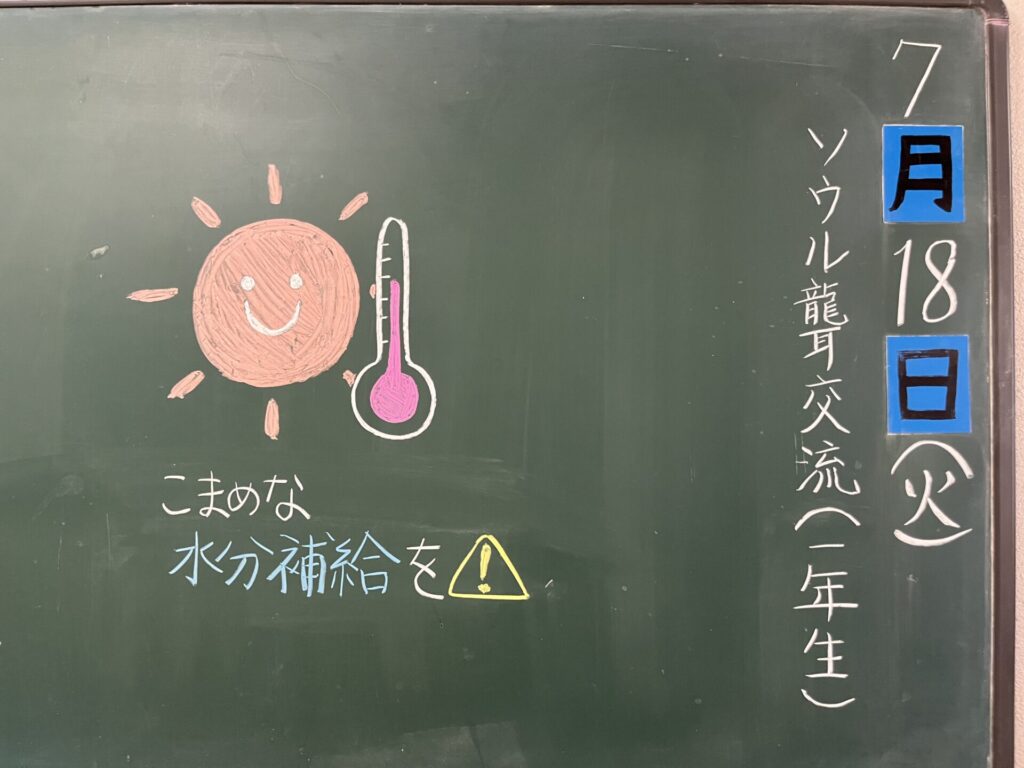 7月18日(火)
ソウル聾交流(一年生)
こまめな
水分補給を!